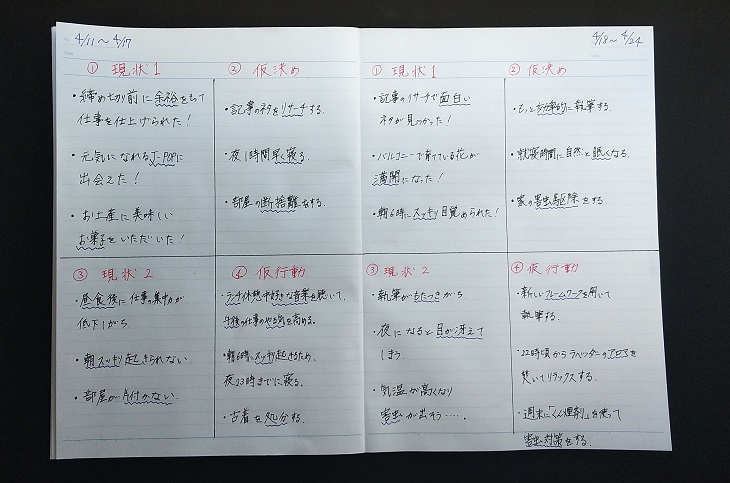 4/11〜4/17
① 現状1
・締め切り前に余裕をもって
仕事を仕上げられた！
・元気になれるJ-POPに
出会えた！
・お土産に美味しい
お菓子をいただいた！
② 仮決め
・記事のネタをリサーチする。
・夜1時間早く寝る。
・部屋の断捨離をする。
③ 現状2
・昼食後に仕事の集中力が
低下しがち。
・朝スッキリ起きられない。
・部屋が片付かない。
④ 仮行動
・ランチ休憩中好きな音楽を聴いて、
午後の仕事のやる気を高める。
・朝6時にスッキリ起きるため、
夜23時までに寝る。
・古着を処分する。
4/18〜4/24
① 現状1
・記事のリサーチで面白い
ネタが見つかった！
・バルコニーで育てている花が
満開になった！
・朝6時にスッキリ目覚められた！
② 仮決め
・もっと効率的に執筆する。
・就寝時間に自然と眠くなる。
・家の害虫駆除をする。
③ 現状2
・執筆がもたつきがち。
・夜になると目が冴えて
しまう。
・気温が高くなり
害虫が出そう……。
④ 仮行動
・新しいフレームワークを用いて
執筆する。
・22時頃からラベンダーのアロマを
焚いてリラックスする。
・週末に「くん煙剤」を使って
害虫対策をする。